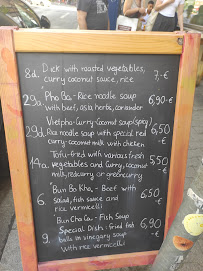 8d. Duck with roasted vegetables, 7,-€
curry coconut sauce, rice
29a Pho Ba - Rice noodle soup 6,90-€
with beef, asia herbs, coriander
Vietpho-Curry-Coconut soup (spicy)
29d. Rice noodle soup with special red 6,50-€
curry-coconut milk with chicken
Tofu-fried with various fresh
14a vegetables and Curry, coconut 5,50-€
milk, red curry or green curry
Bun Bo Kho, - Beef with
6. salad, fish sauce and 6,50-€
rice vermicelli
Bun Cha Ca - Fish Soup
Special Dish: fried fish 6,90-€
9. balls in vinegary soup
with rice vermicelli